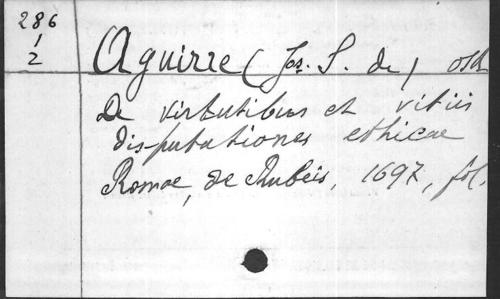 286
1
2
Aguirre (Jos. S. de) OSB
De virtutibus et vitiis
disputationes ethicae
Romae, de Rubeis, 1697, fol.